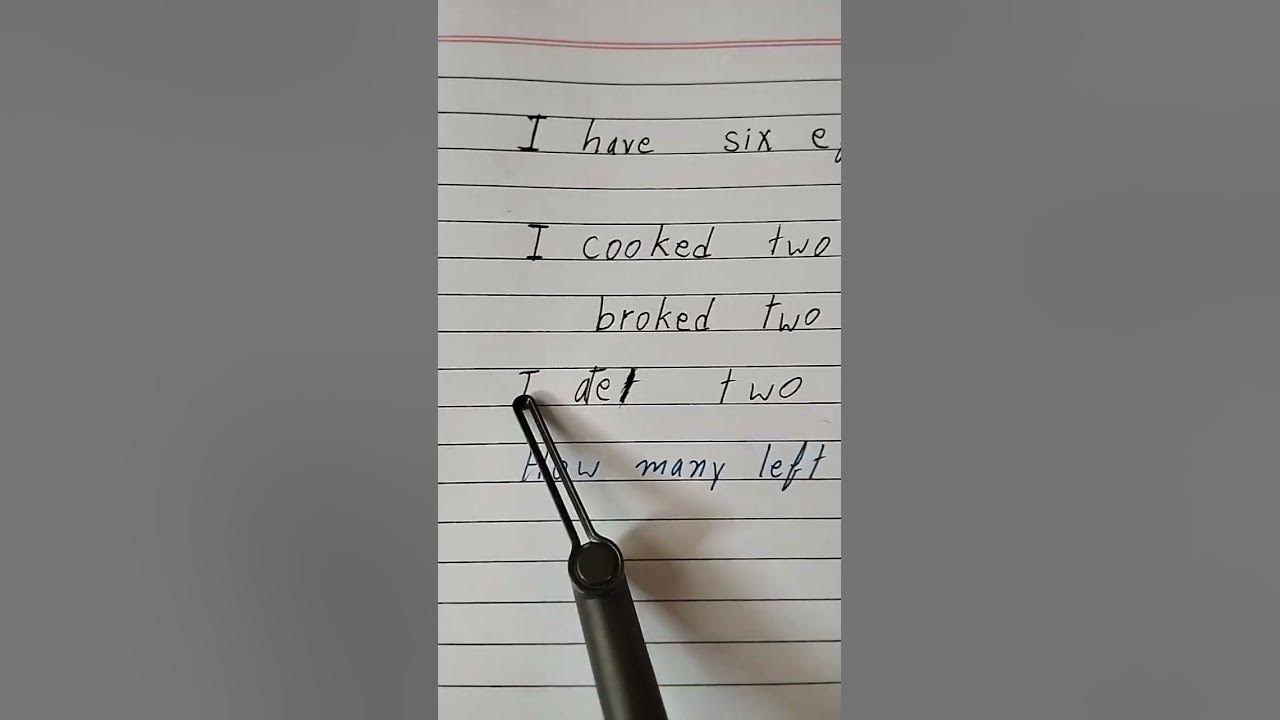 I have six
I cooked two
broked two
I two
How many left